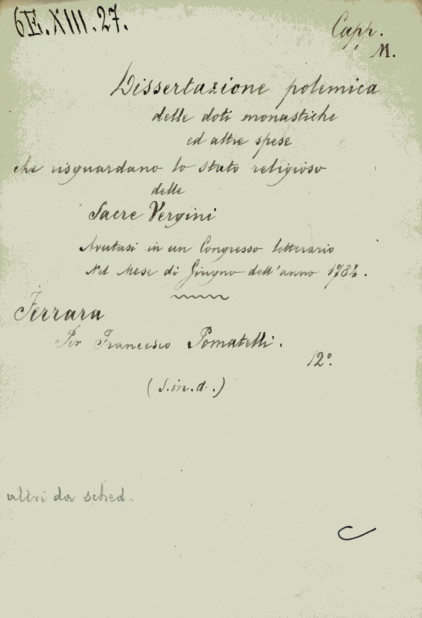 6E.XIII.27.
Capr.
M.
Dissertazione polemica
delle doti monastiche
ed altre spese
che risguardano lo stato religioso
delle
Sacre Vergini
Avutasi in un Congresso letterario
Nel Mese di Giugno dell'anno 1784.
Ferrara
Per Francesco Pomatelli.
12º.
(S.in.d.)
altri da sched.
C